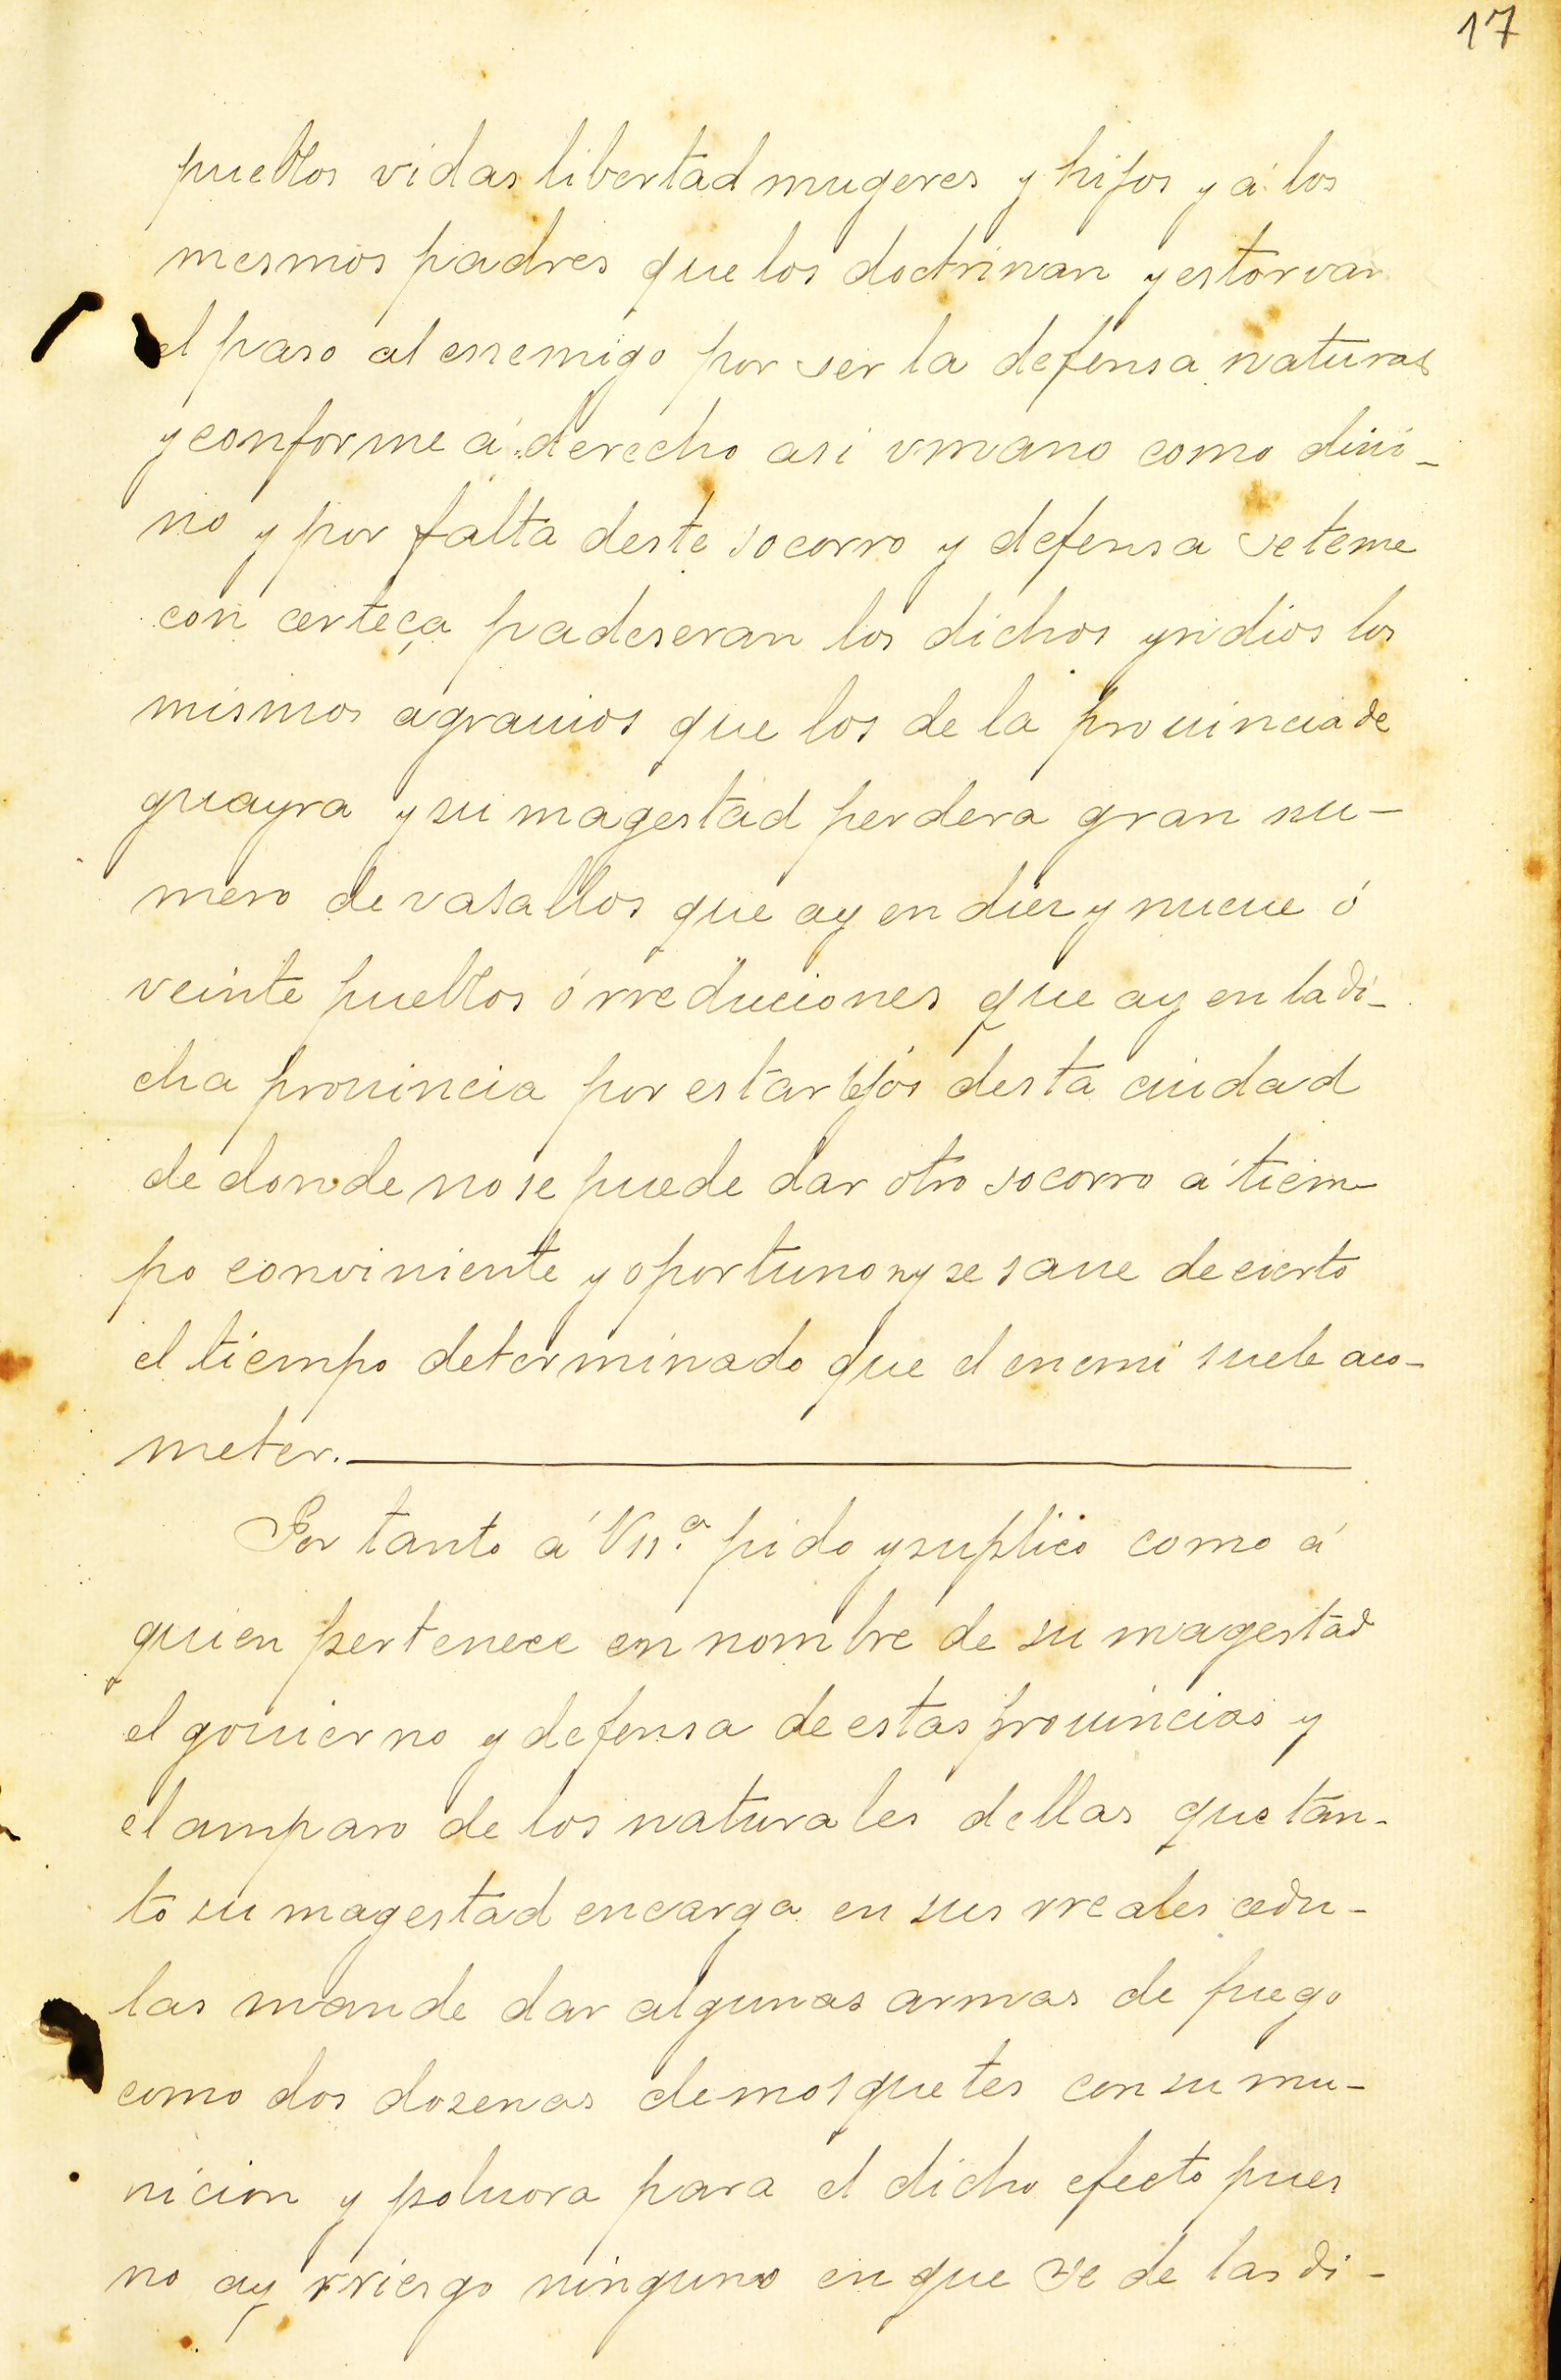 17
pueblos vidas libertad mugeres y hijos y á los
mesmos padres que los doctrinan y estorvar
el paso al enemigo por ser la defensa natural
y conforme á derecho asi vmano como diui-
no y por falta deste socorro y defensa se teme
con certeça padeseran los dichos yndios los
mismos agrauios que los de la prouincia de
guayra y su magestad perdera gran nu-
mero de vasallos que ay en diez y nueue ó
veinte pueblos ó rreduciones que ay en la di-
cha prouincia por estar lejos desta ciudad
de donde no se puede dar otro socorro á tiem-
po conviniente y oportuno ny se saue de cierto
el tiempo determinado que el enemi suele aco-
meter.
Por tanto á Vsª pido y suplico como á
quien pertenece en nombre de su magestad
el gouierno y defensa de estas prouincias y
el amparo de los naturales dellas que tan-
to su magestad encarga en sus rreales cedu-
las mande dar algunas armas de fuego
como dos dosenas de mosquetes con su mu-
nicion y poluora para el dicho efecto pues
no ay rriesgo ninguno en que se de las di-